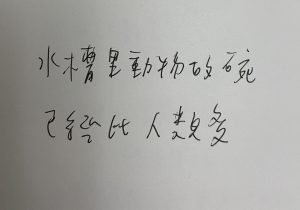 水槽里動物的碗
已經比人類多